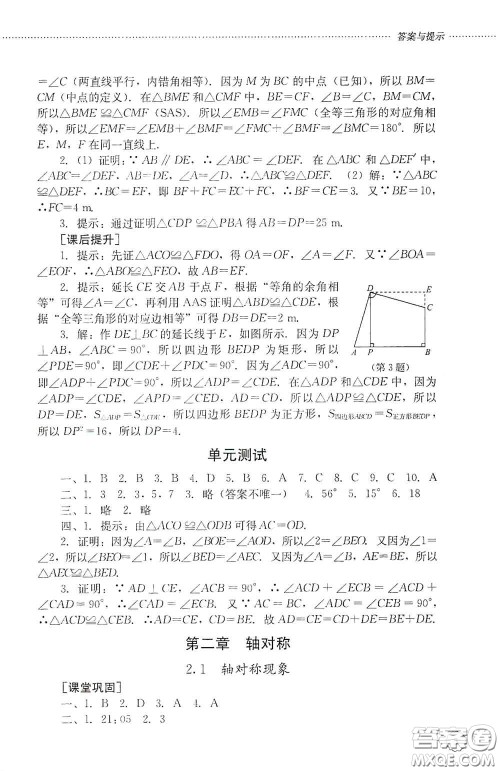 答案与提示
=∠C（两直线平行，内错角相等）. 因为 M 为 BC 的中点（已知），所以 BM=
CM（中点的定义）. 在△BME 和△CMF 中，BE=CF，∠B=∠C，BM=CM，
所以△BME≌△CMF（SAS）. 所以∠EMB=∠FMC（全等三角形的对应角相
等），所以∠EMF=∠EMB+∠BMF=∠FMC+∠BMF=∠BMC=180°. 所以
E，M，F 在同一直线上.
2.（1）证明：∵AB∥DE，∴∠ABC=∠DEF. 在△ABC 和△DEF 中，
∠ABC=∠DEF，AB=DE，∠A=∠D，∴△ABC≌△DEF.（2）解：∵△ABC
≌△DEF，∴BC=EF，即 BF+FC=EC+FC，∴BF=CE=3. 又∵BE=10，
∴FC=4 m.
3. 提示：通过证明△CDP≌△PBA 得 AB=DP=25 m.
[课后提升]
1. 提示：先证△AOC≌△FDO，得 OA=OF，∠A=∠F. 又∵∠BOA=
∠EOF，∴△ABO≌△FEO，故 AB=EF.
2. 提示：延长 CE 交 AB 于点 F，根据“等角的余角相
等”可得∠A=∠C，再利用 AAS 证明△ABD≌△CDE，根
据“全等三角形的对应边相等”可得 DB=DE=2 m.
3. 解：作 DE⊥BC 的延长线于 E，如图所示. 因为 DP
⊥AB，∠ABC=90°，所以四边形 BEDP 为矩形，所以
∠PDE=90°，即∠CDE+∠PDC=90°. 因为∠ADC=90°，
即∠ADP+∠PDC=90°，所以∠ADP=∠CDE. 在△ADP 和△CDE 中，因为
∠ADP=∠CDE，∠APD=∠CED，AD=CD，所以△ADP≌△CDE，所以
DP=DE，S△ADP=S△CDE，所以四边形 BEDP 为正方形，S四边形ABCD=S正方形BEDP，
所以 DP²=16，所以 DP=4.
D
E
C
A
P
B
（第 3 题）
单元测试
一、1. B 2. B 3. B 4. D 5. B 6. A 7. C 8. C 9. C 10. A
二、1. 3 2. 3，4，5 3. 略（答案不唯一） 4. 56° 5. 15° 6. 18
三、1. 略 2. 略
四、1. 提示：由△ACO≌△ODB 可得 AC=OD.
2. 证明：因为∠A=∠B，∠BOE=∠AOD，所以∠2=∠BEO. 又因为∠1=
∠2，所以∠1=∠BEO，所以∠BED=∠AEC. 又因为∠A=∠B，AE=BE，所以
△AEC≌△BED.
3. 证明：∵AD⊥CE，∠ACB=90°，∴∠ACD+∠ECB=∠ACD+
∠CAD=90°，∴∠CAD=∠ECB. 又∵AC=BC，∠ADC=∠CEB=90°，
∴△ACD≌△CEB. ∴DC=EB，AD=CE. 故 AD=CE=CD+DE=BE+DE.
第二章 轴对称
2.1 轴对称现象
[课堂巩固]
一、1. B 2. D 3. B 4. A 5. A
二、1. 21：05 2. 3